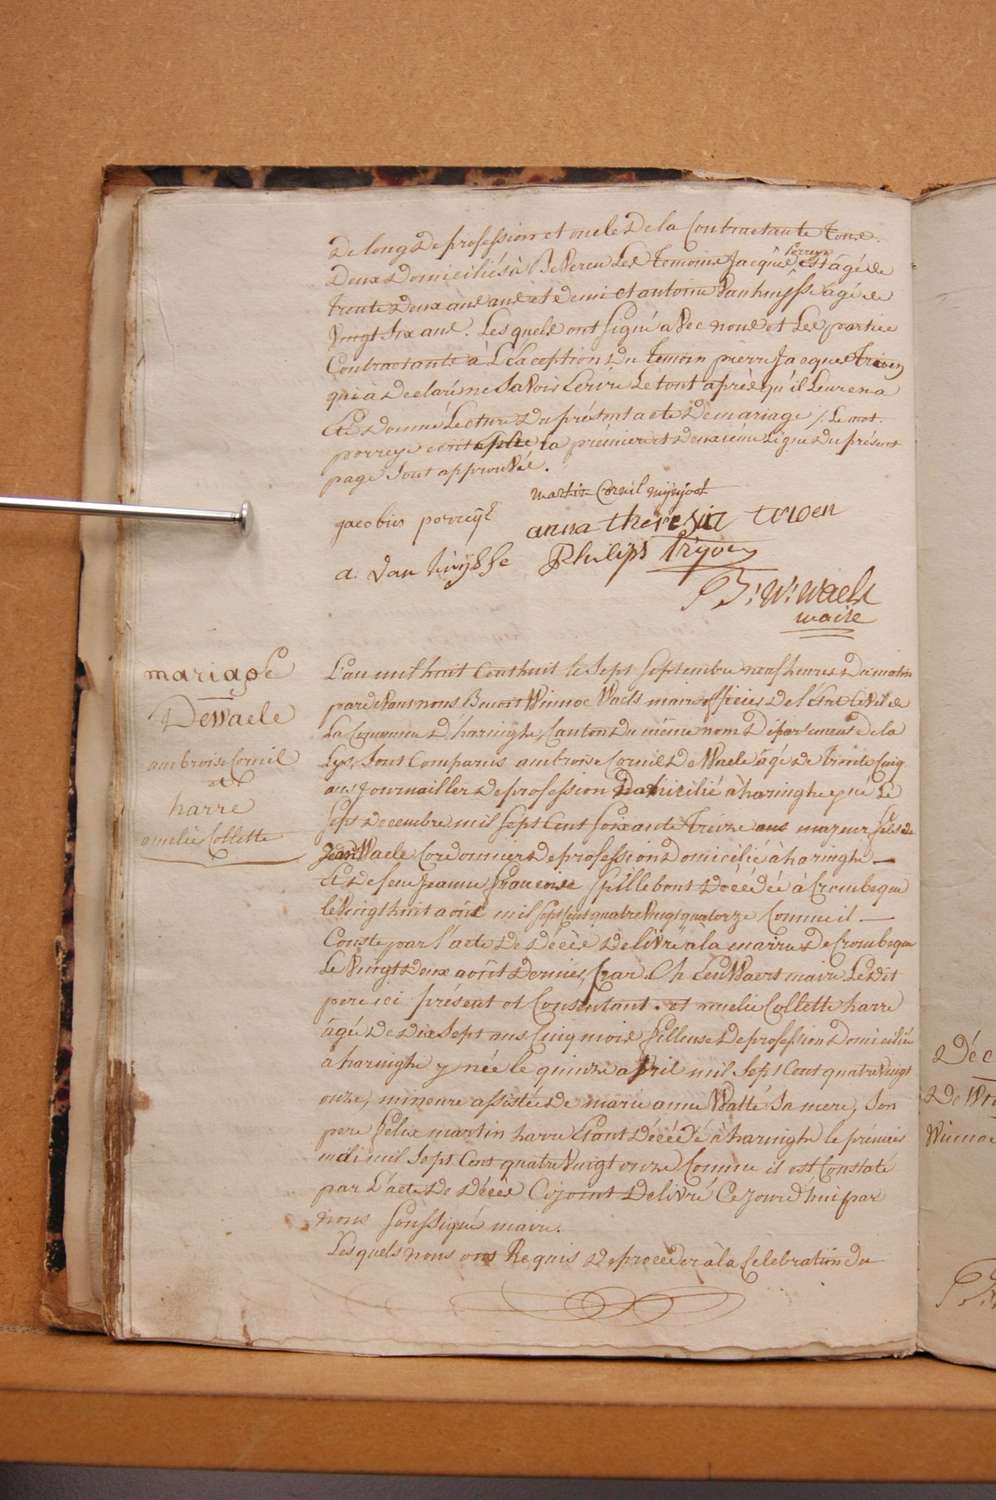 de long de profession et oncle de la Contractante tous
deux domiciliés à Beveren Les temoins Jacques porreye est âgé de
trente deux ans et demi et antoine Vanhuysse âgé de
vingt six ans. Lesquels ont signé avec nous et Les parties
Contractante à L'éxception du temoin pierre Jacques
qui à declaré ne savoir Ecrire Le tout après qu'il Leur en a
été donné Lecture du présent acte de mariage /. Le mot
porreye entre la prémiere et deuxieme Ligne du présent
page sont approuvée.
martin Corneil
jacobus porreye anna theresia troen
a. Van huysse Philips Tryoen
B: W: Waels
maire
mariage
DeWaele
ambroise Corneil
et
harre
amelie Collette
L'an mil huit Cent huit le sept septembre neuf heures du matin
pardevant nous Benoit Winnoc Waels maire officier de l'état Civil de
La Commune d'haringhe, Canton du même nom, département de la
Lys, sont Comparus ambroise Corneil de Waele âgé de trente Cinq
ans Journaillier de profession Domicilié à haringhe y né Le
sept decembre mil sept Cent soixante treize ans majeur fils de
Jean Waele Cordonnier de profession domicilié à haringhe
Et de feue Jeanne françoise Spillebout décédée à Crombeque
le vingt huit août mil sept Cent quatre vingt quatorze Comme il
Conste par l'acte de décès delivré à la mairie de Crombeque
Le vingt deux août dernier, par Ch Leuwaers maire Le dit
pere ici présent et Consentant. et amelie Collette harre
âgée de dix sept ans Cinq mois fileuse de profession domiciliée
à haringhe y née le quinze avril mil sept Cent quatre vingt
onze, mineure assistée de marie anne Watté sa mere, son
pere felix martin harre Etant décédé à haringhe le prémier
mai mil sept Cent quatre vingt onze Comme il est Constaté
par L'acte de décès Cijoint delivré Ce jour d'hui par
nous soussigné maire.
Lesquels nous ont Requis de proceder à la Célébration du
Déc
De Wa
Winnoc